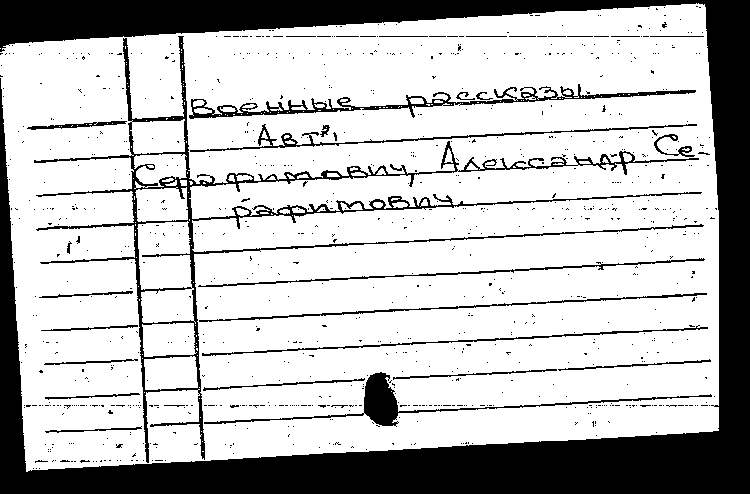 Военные рассказы.
Авт.:
Серафимович, Александр Се-
рафимович.